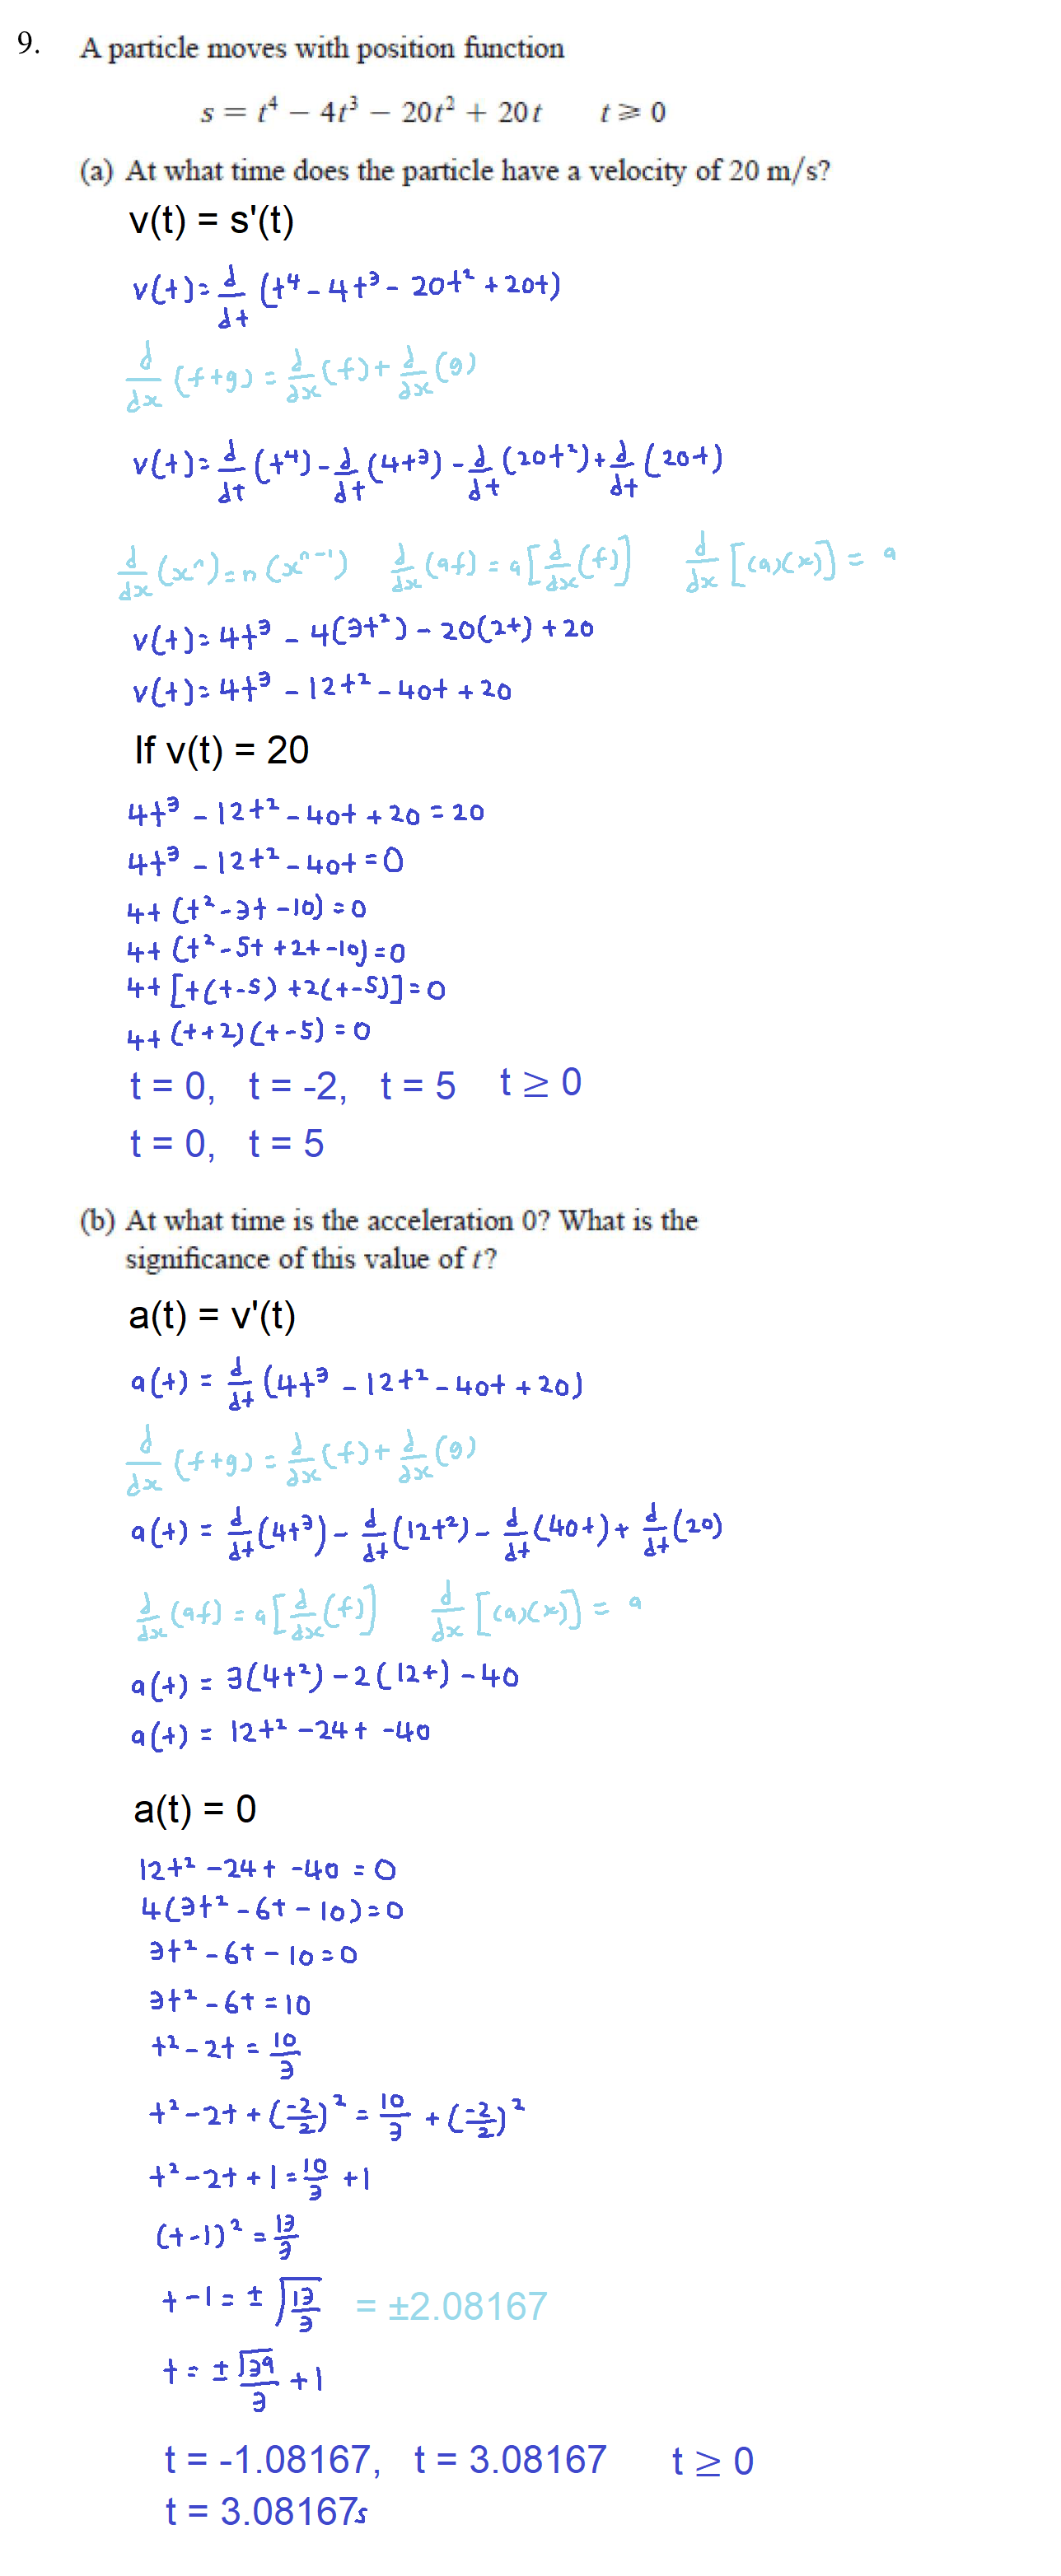 9. A particle moves with position function
s = t⁴ − 4t³ − 20t² + 20t   t ⩾ 0
(a) At what time does the particle have a velocity of 20 m/s?
v(t) = s'(t)
v(t) = d/dt (t⁴ - 4t³ - 20t² + 20t)
d/dx (f+g) = d/dx (f) + d/dx (g)
v(t) = d/dt (t⁴) - d/dt (4t³) - d/dt (20t²) + d/dt (20t)
d/dx (xⁿ) = n(xⁿ⁻¹)   d/dx (af) = a[d/dx (f)]   d/dx [(a)(x)] = a
v(t) = 4t³ - 4(3t²) - 20(2t) + 20
v(t) = 4t³ - 12t² - 40t + 20
If v(t) = 20
4t³ - 12t² - 40t + 20 = 20
4t³ - 12t² - 40t = 0
4t (t² - 3t - 10) = 0
4t (t² - 5t + 2t - 10) = 0
4t [t(t-5) + 2(t-5)] = 0
4t (t+2)(t-5) = 0
t = 0,   t = -2,   t = 5   t ≥ 0
t = 0,   t = 5
(b) At what time is the acceleration 0? What is the
significance of this value of t?
a(t) = v'(t)
a(t) = d/dt (4t³ - 12t² - 40t + 20)
d/dx (f+g) = d/dx (f) + d/dx (g)
a(t) = d/dt (4t³) - d/dt (12t²) - d/dt (40t) + d/dt (20)
d/dx (af) = a[d/dx (f)]   d/dx [(a)(x)] = a
a(t) = 3(4t²) - 2(12t) - 40
a(t) = 12t² - 24t - 40
a(t) = 0
12t² - 24t - 40 = 0
4(3t² - 6t - 10) = 0
3t² - 6t - 10 = 0
3t² - 6t = 10
t² - 2t = 10/3
t² - 2t + (-2/2)² = 10/3 + (-2/2)²
t² - 2t + 1 = 10/3 + 1
(t-1)² = 13/3
t - 1 = ± √(13/3)   = ±2.08167
t = ± √39/3 + 1
t = -1.08167,   t = 3.08167   t ≥ 0
t = 3.08167s